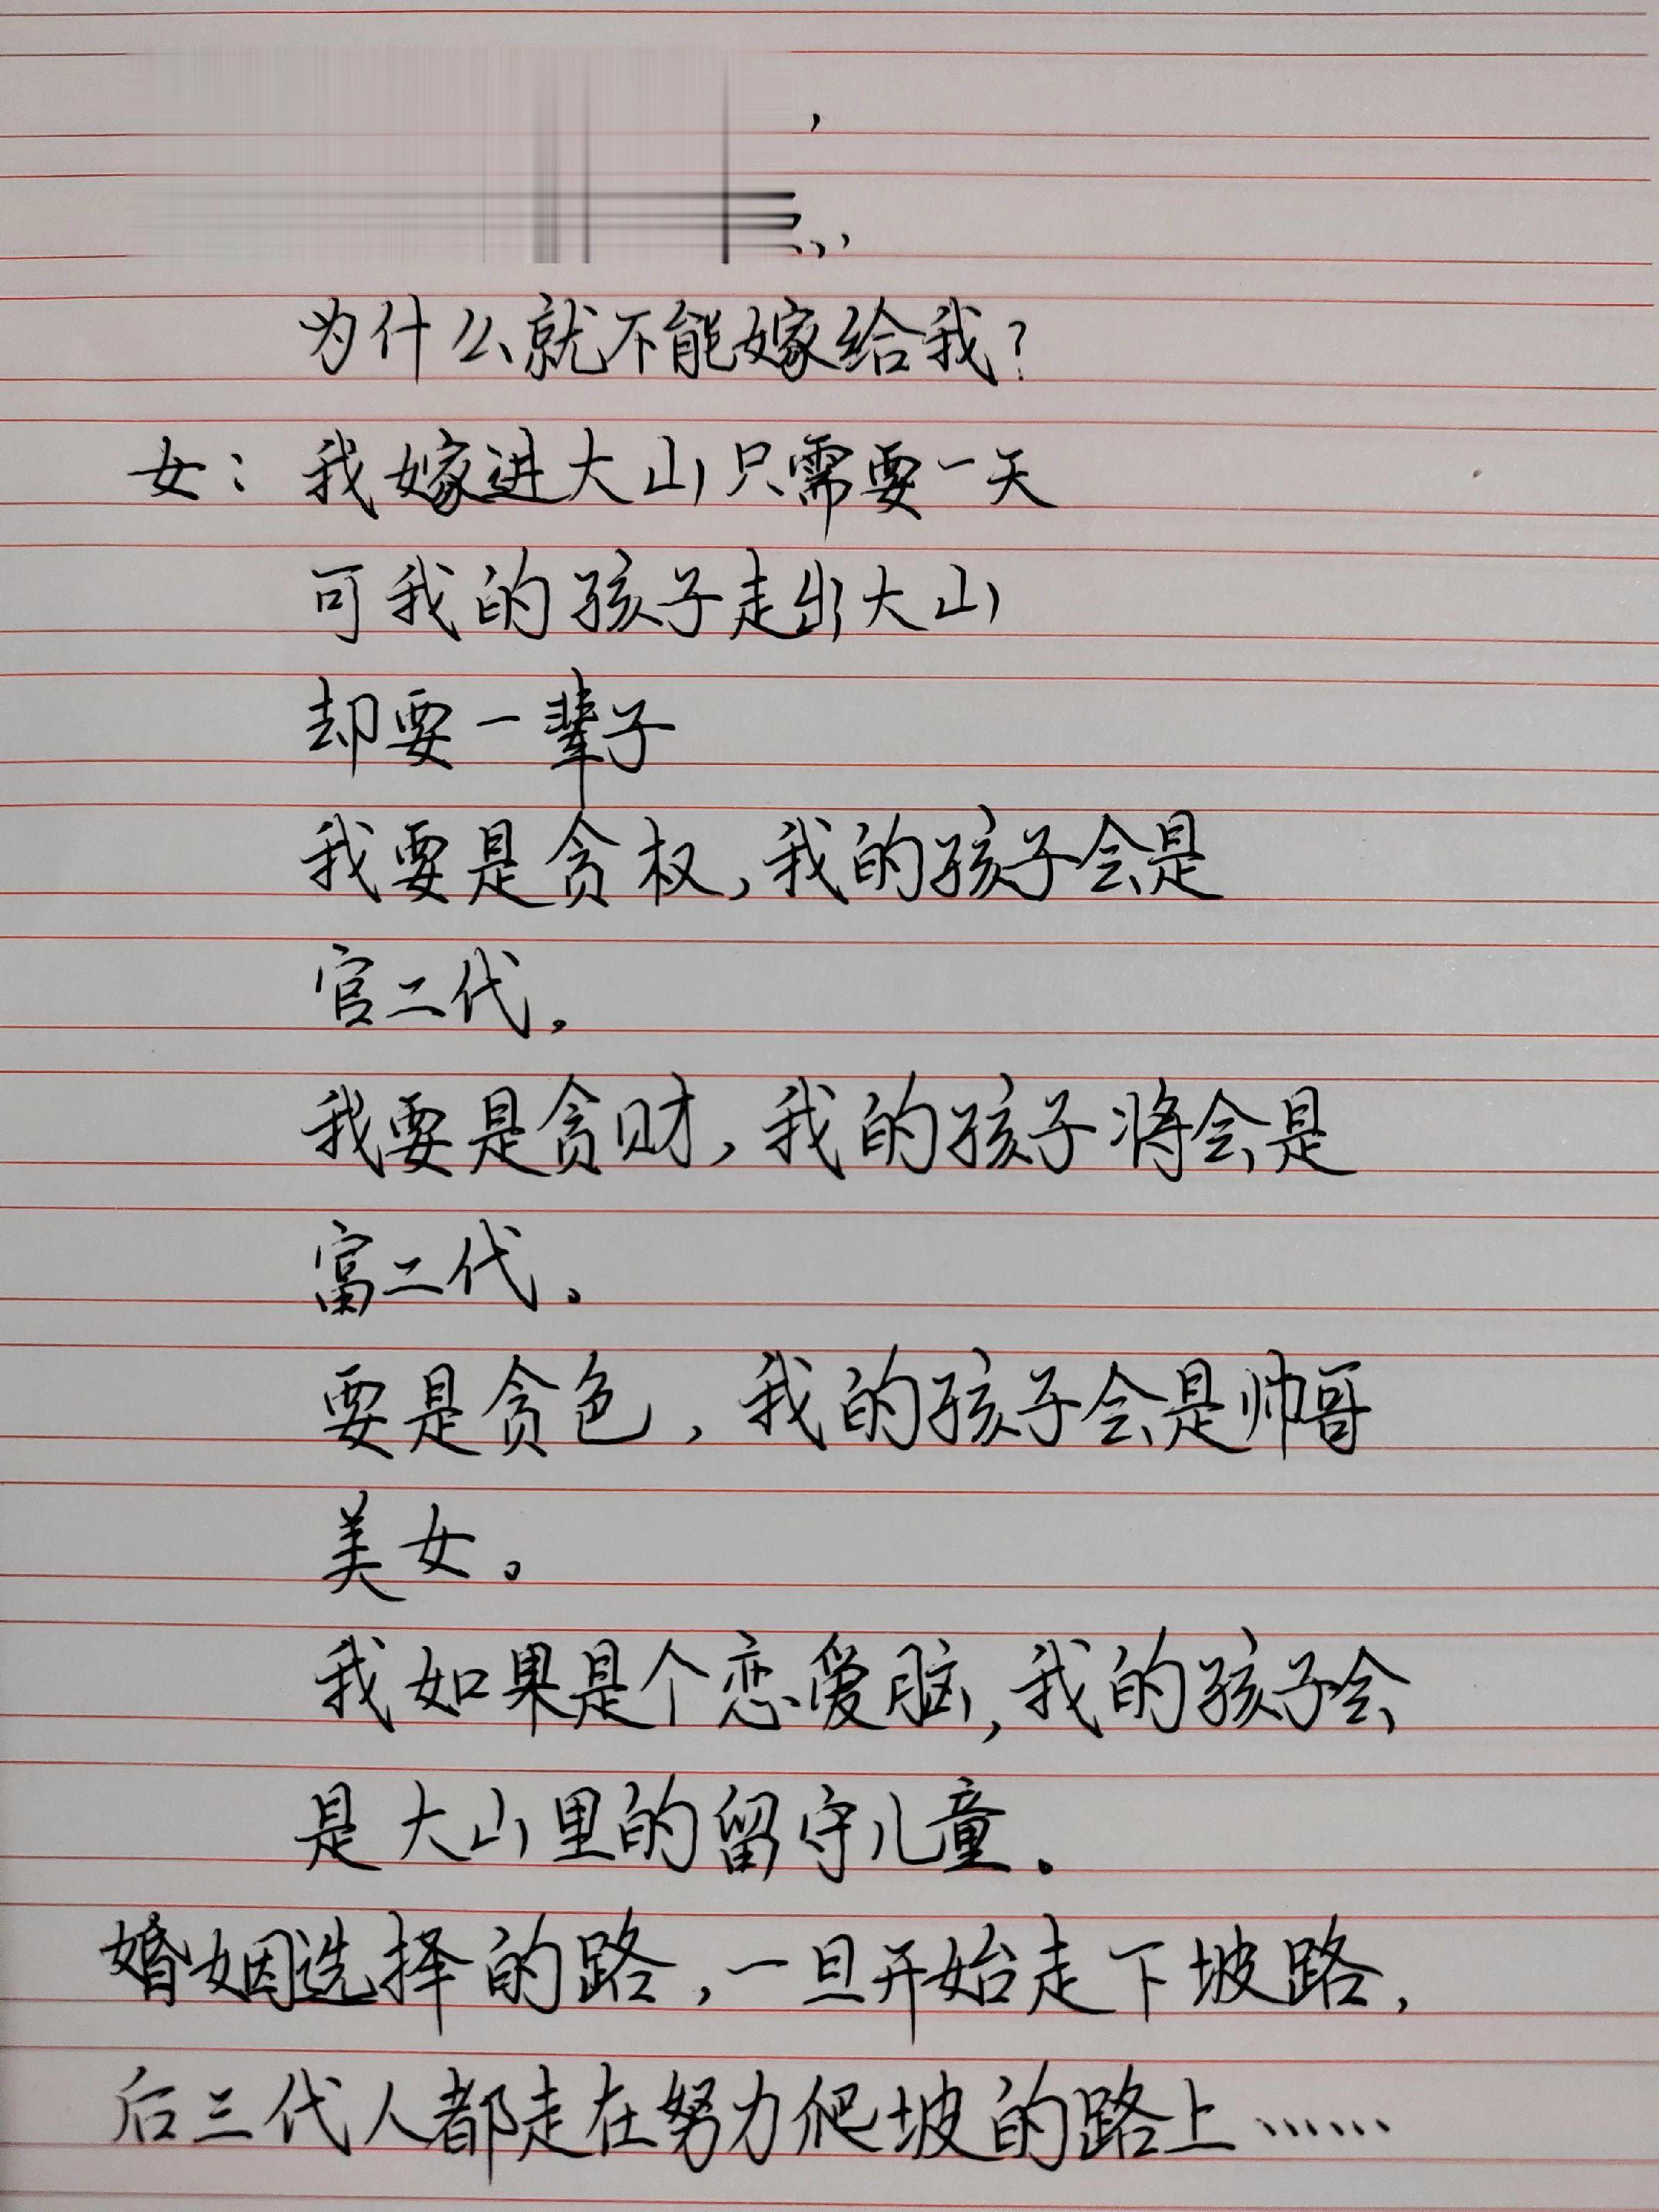 为什么就不能嫁给我？
女：我嫁进大山只需要一天
可我的孩子走出大山
却要一辈子
我要是贪权，我的孩子会是
官二代，
我要是贪财，我的孩子将会是
富二代。
要是贪色，我的孩子会是帅哥
美女。
我如果是个恋爱脑，我的孩子会
是大山里的留守儿童。
婚姻选择的路，一旦开始走下坡路，
后三代人都走在努力爬坡的路上……